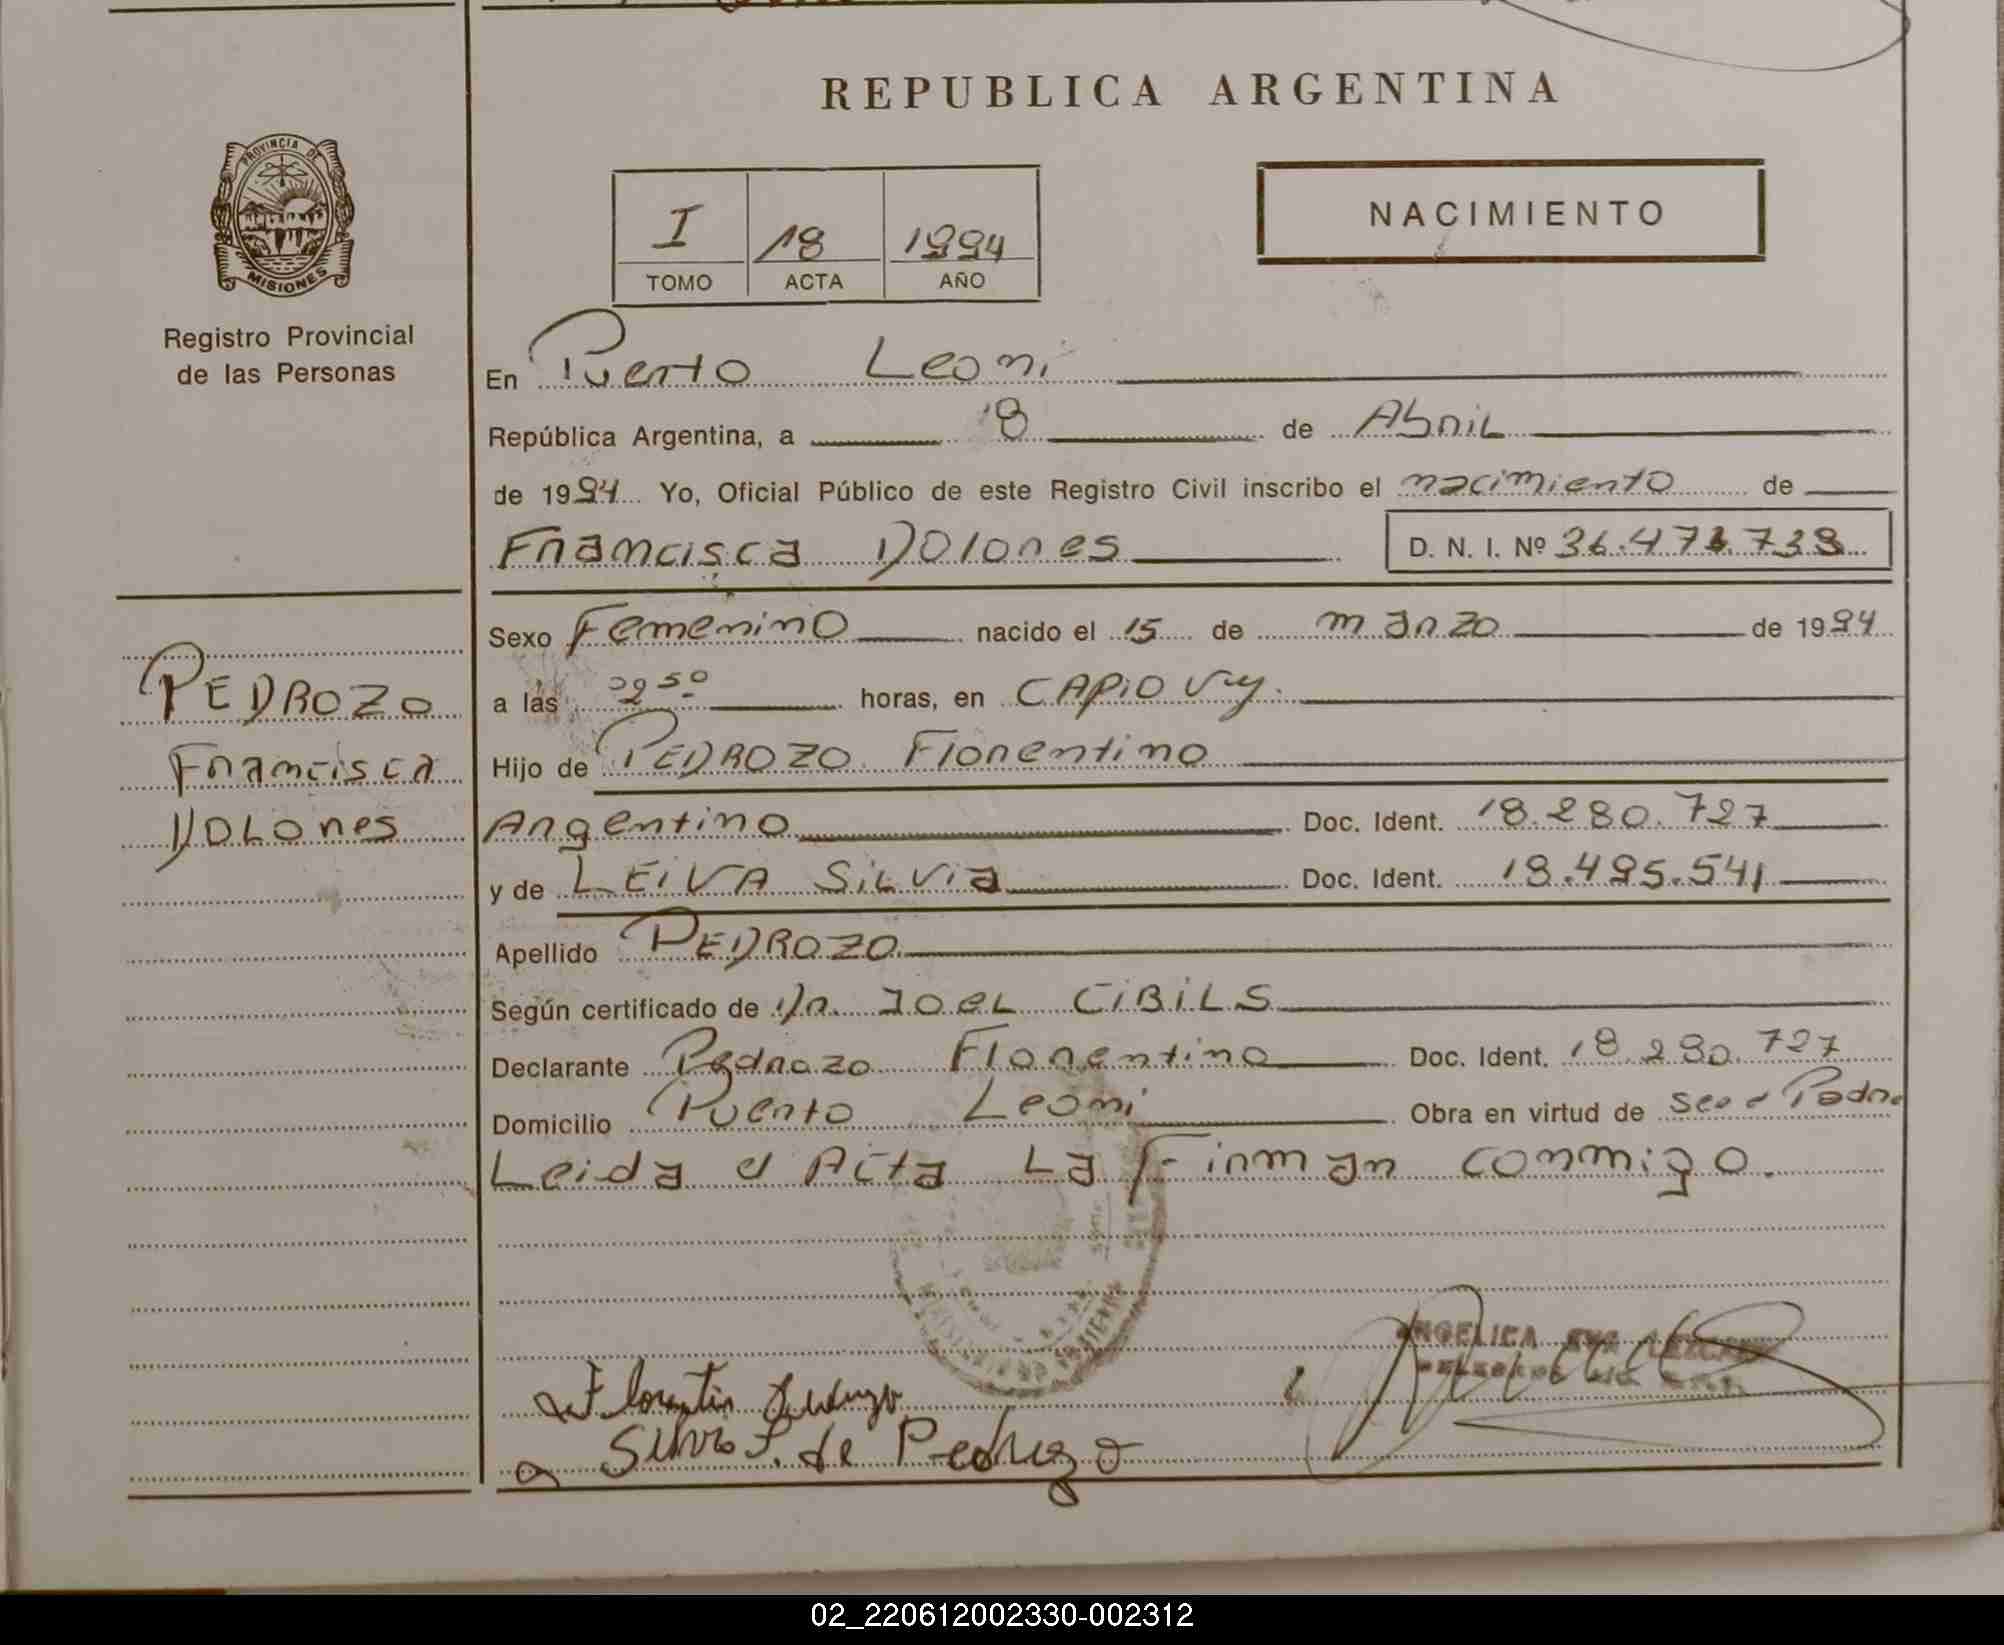 REPUBLICA ARGENTINA
PROVINCIA DE
MISIONES
Registro Provincial
de las Personas
I 18 1994
TOMO ACTA AÑO
NACIMIENTO
En Puerto Leoni
República Argentina, a 18 de Abril
de 1994 Yo, Oficial Público de este Registro Civil inscribo el nacimiento de
Francisca Dolores D. N. I. Nº
Sexo Femenino nacido el 15 de marzo de 1994
a las horas, en CAPiOVy.
Hijo de PEDROZO Florentino
Argentino Doc. Ident. 18.280.727
y de LEIVA SILVIA Doc. Ident. 18.495.541
Apellido PEDROZO
Según certificado de Dr. JOEL CIBILS
Declarante Pedrozo Florentino Doc. Ident. 18.280.727
Domicilio Puerto Leoni Obra en virtud de ser el Padre
Leida el Acta La Firman conmigo.
PEDROZO
Francisca
DOLores
ANGELICA
Florentin
Silvia L. de Pedrozo
02_220612002330-002312